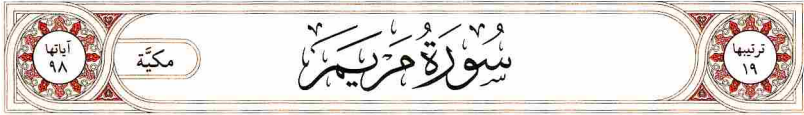 ترتيبها
١٩
سُورَةُ مَرْيَمَ
مكيَّة
آياتها
٩٨